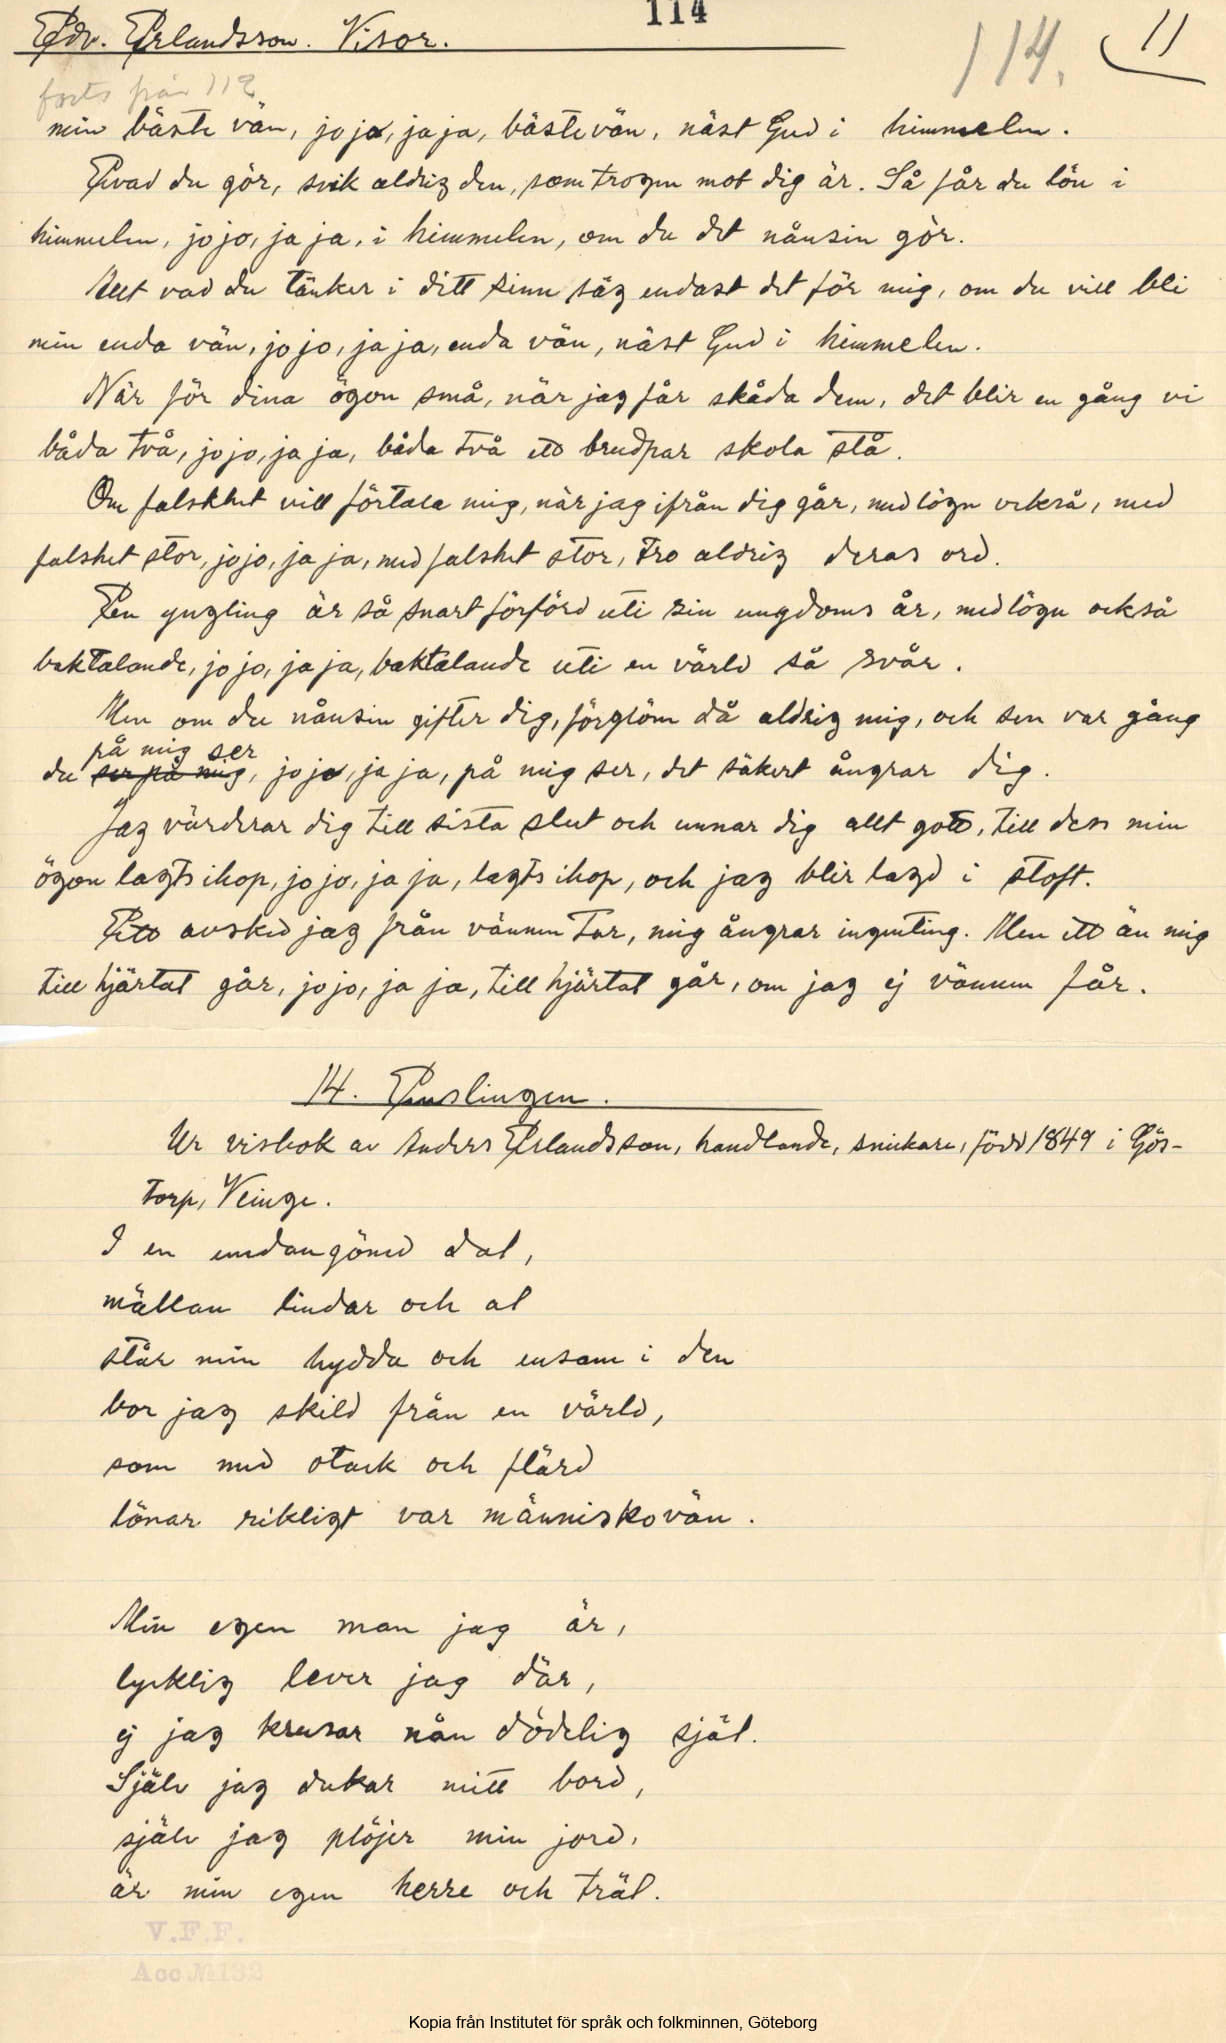 114
Edv. Erlandsson. Visor.
114.
11
forts från 112
min bäste vän, jojo, jaja, bäste vän, näst Gud i himmelen.
Hvad du gör, svik aldrig den, som trogen mot dig är. Så får du lön i
himmelen, jojo, jaja, i himmelen, om du det nånsin gör.
Allt vad du tänker i ditt sinn säg endast det för mig, om du vill bli
min enda vän, jojo, jaja, enda vän, näst Gud i himmelen.
När för dina ögon små, när jag får skåda dem, det blir en gång vi
båda två, jojo, jaja, båda två ett brudpar skola stå.
Om falskhet vill förtala mig, när jag ifrån dig går, med lögn också, med
falshet stor, jojo, jaja, med falshet stor, tro aldrig deras ord.
En yngling är så snart förförd uti sin ungdoms år, med lögn också
baktalande, jojo, jaja, baktalande uti en värld så svår.
Men om du nånsin gifter dig, förglöm då aldrig mig, och sen var gång
på mig ser
du ser på mig, jojo, jaja, på mig ser, det säkert ångrar dig.
Jag värderar dig till sista slut och unnar dig allt gott, till dess min
ögon lagts ihop, jojo, jaja, lagts ihop, och jag blir lagd i stoft.
Ett avsked jag från vännen tar, mig ångrar ingenting. Men ett än mig
till hjärtat går, jojo, jaja, till hjärtat går, om jag ej vännen får.
14. Enslingen.
Ur visbok av Anders Erlandsson, handlande, snickare, född 1849 i Gös-
torp, Veinge.
I en undangömd dal,
mällan lindar och al
står min hydda och ensam i den
bor jag skild från en värld,
som med otack och flärd
lönar rikligt var människovän.
Min egen man jag är,
lycklig lever jag där,
ej jag krusar nån dödelig själ.
Själv jag dukar mitt bord,
själv jag plöjer min jord,
är min egen herre och träl.
V.F.F.
Acc № 132
Kopia från Institutet för språk och folkminnen, Göteborg